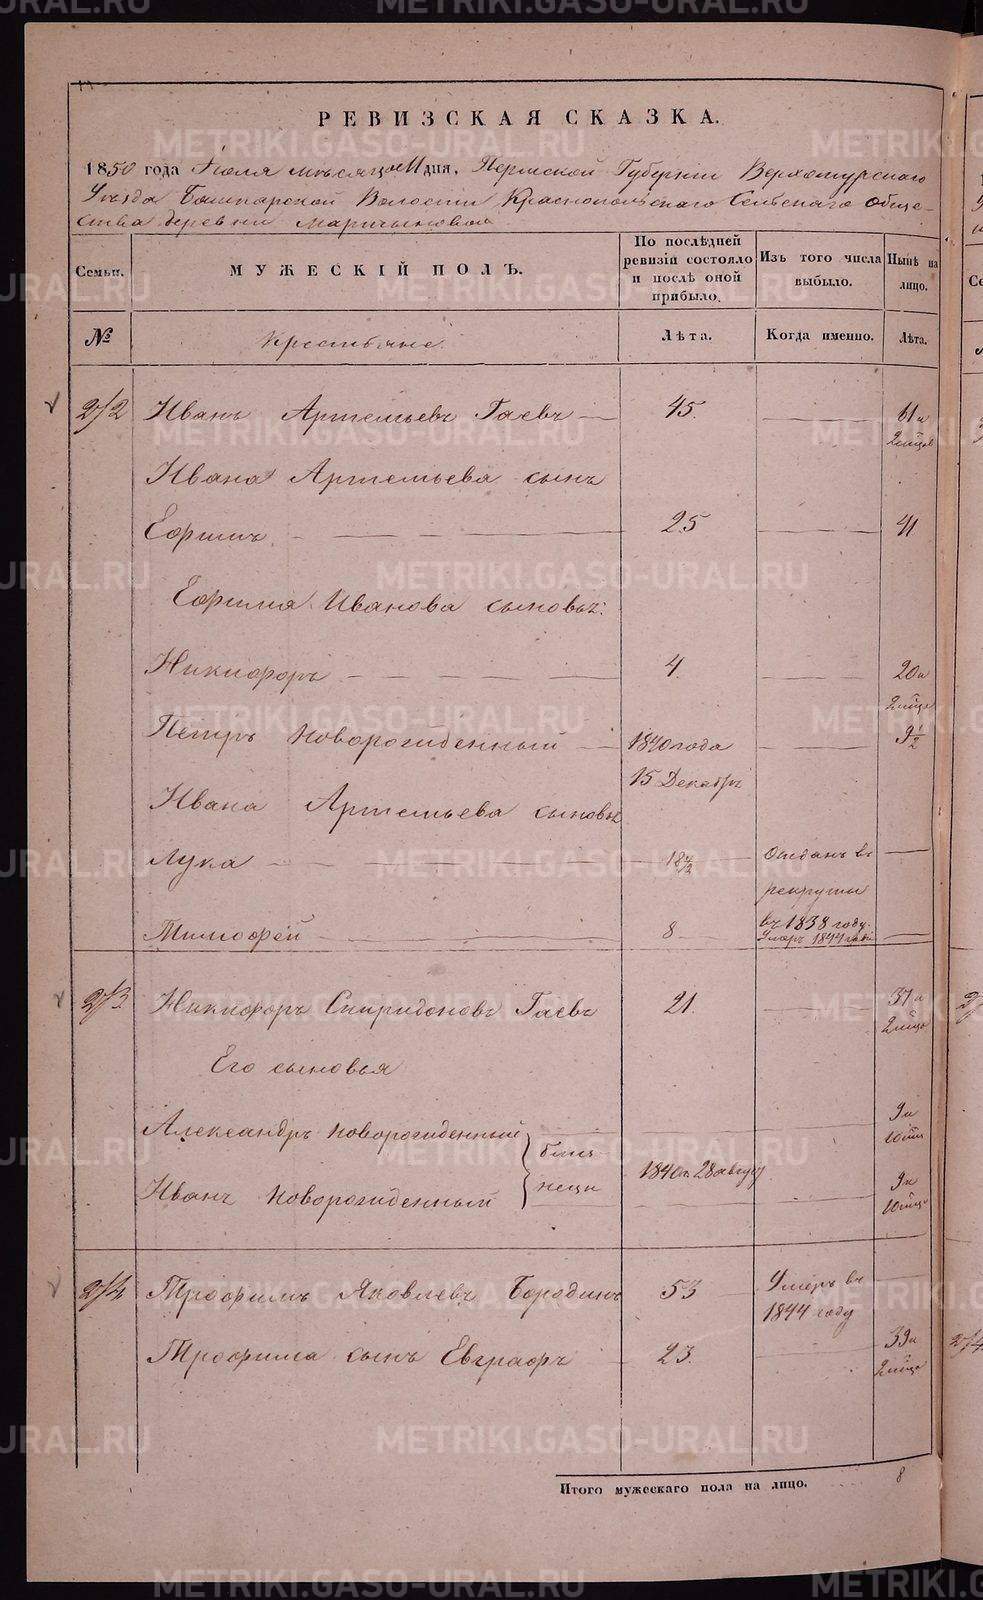 РЕВИЗСКАЯ СКАЗКА.
1850 года Июля месяца 11 дня, Пермской Губерніи Верхотурскаго
Уѣзда Башкарской Волости Краснопольскаго Сельскаго Обще-
ства деревни
Семьи.
МУЖЕСКІЙ ПОЛЪ.
По послѣдней ревизіи состояло и послѣ оной прибыло.
Изъ того числа выбыло.
Нынѣ на лицо.
№
Крестьяне
Лѣта.
Когда именно.
Лѣта.
2/2 Иванъ Артемьевъ Гаевъ 45. 61 и
2 мѣся
Ивана Артемьева сынъ
Ефимъ 25 41
Ефима Иванова сыновья:
Никифоръ 4. 20 и
2 мѣся
Петръ новорожденный 1840 года 9 1/2
15 Декабръ
Ивана Артемьева сыновья
Лука 18 1/2 Отданъ въ
рекруты
въ 1838 году.
Тимофей 8 Умеръ 1844 года
2/3 Никифоръ Спиридоновъ Гаевъ 21. 37 и
2 мѣся
Его сыновья
Александръ новорожденный 9 и
10 мѣся
близ-
нецы
1840 г. 28 август
Иванъ новорожденный 9 и
10 мѣся
2/4 Трофимъ Яковлевъ Бородинъ 53 Умеръ въ
1844 году
Трофима сынъ Евграфъ 23. 39 и
2 мѣся
Итого мужескаго пола на лицо. 8
METRIKI.GASO-URAL.RU